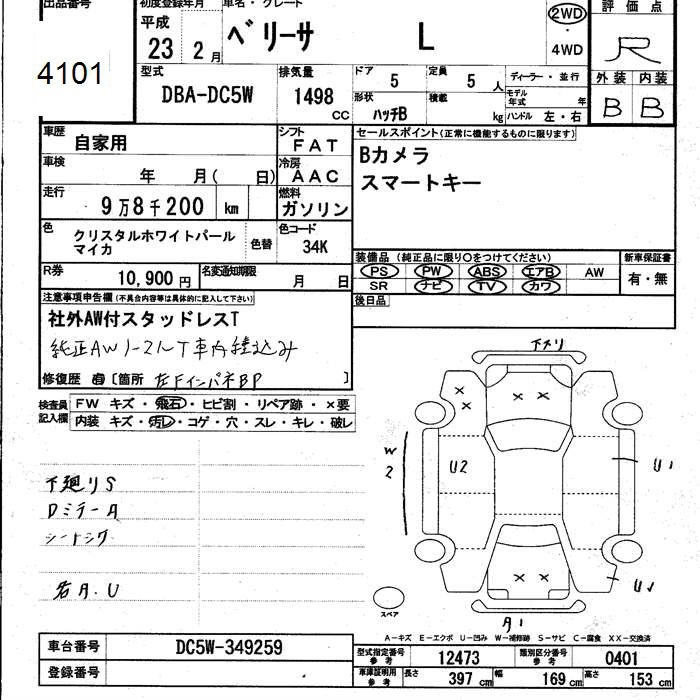 出品番号
4101
初度登録年月
平成
23 2月
車名・グレード
ベリーサ L
2WD
・
4WD
評価点
R
外装 内装
B B
型式
DBA-DC5W
排気量
1498
CC
ドア
5
定員
5
人
形状
ハッチB
積載
kg
ディーラー・並行
モデル
年式
年
ハンドル 左・右
車歴
自家用
シフト
FAT
車検
年 月( 日)
冷房
AAC
走行
9万8千200 km
燃料
ガソリン
色
クリスタルホワイトパール
マイカ
色替
色コード
34K
R券
10,900円
名変通知期限
月 日
セールスポイント(正常に機能するものに限ります)
Bカメラ
スマートキー
装備品 (純正品に限り○をつけてください)
PS PW ABS エアB AW
SR ナビ TV カワ
新車保証書
有・無
後日品
注意事項申告欄(不具合内容等は具体的に記入して下さい)
社外AW付スタッドレスT
純正AWノーマルT車内積込み
修復歴 有 〔箇所 左FインパネBP 〕
検査員
記入欄
FW キズ・飛石・ヒビ割・リペア跡・×要
内装 キズ・汚レ・コゲ・穴・スレ・キレ・破レ
下廻りS
DミラーA
シートシワ
各A.U
下スリ
W2
U2
U1
A1
スペア
A-キズ E-エクボ U-凹み W-補修跡 S-サビ C-腐食 XX-交換済
車台番号
DC5W-349259
登録番号
型式指定番号
参考
12473
類別区分番号
参考
0401
車庫証明用
参考
長さ
397 cm
幅
169 cm
高さ
153 cm